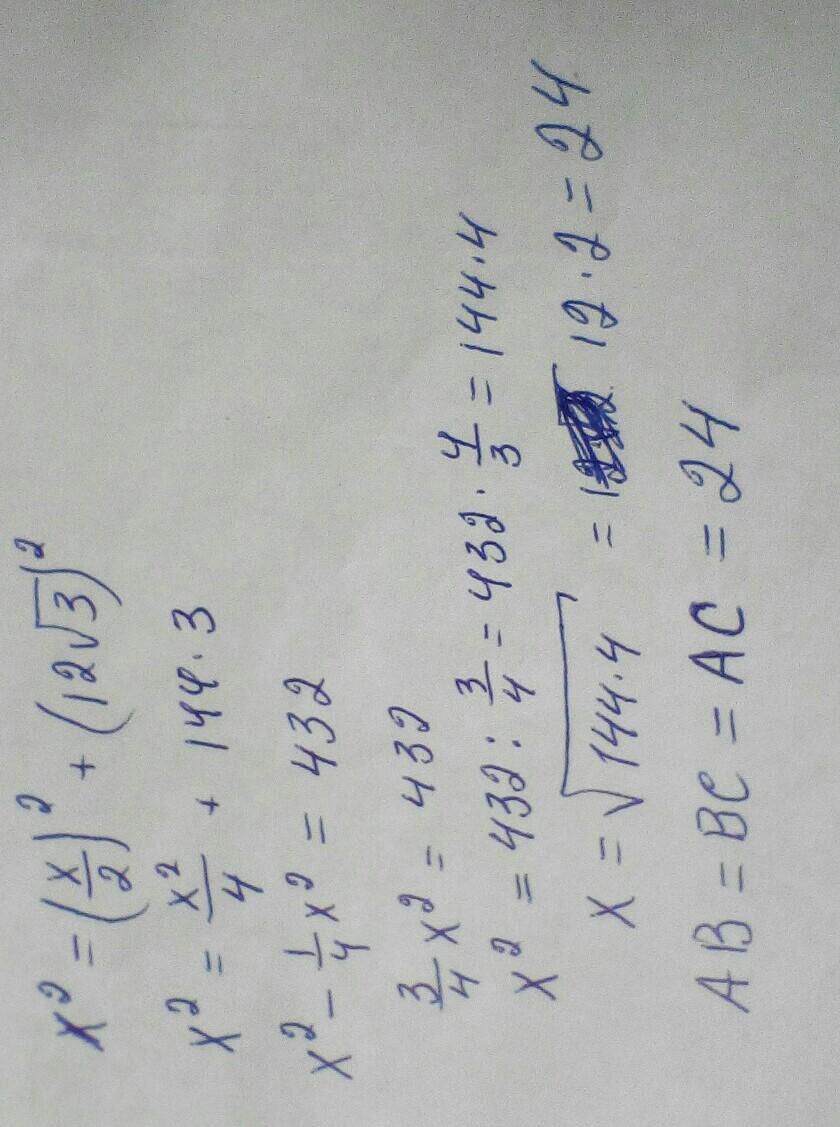 x² = (x/2)² + (12√3)²
x² = x²/4 + 144·3
x² - 1/4 x² = 432
3/4 x² = 432
x² = 432 : 3/4 = 432 · 4/3 = 144·4
x = √144·4 = 12·2 = 24
AB = BC = AC = 24